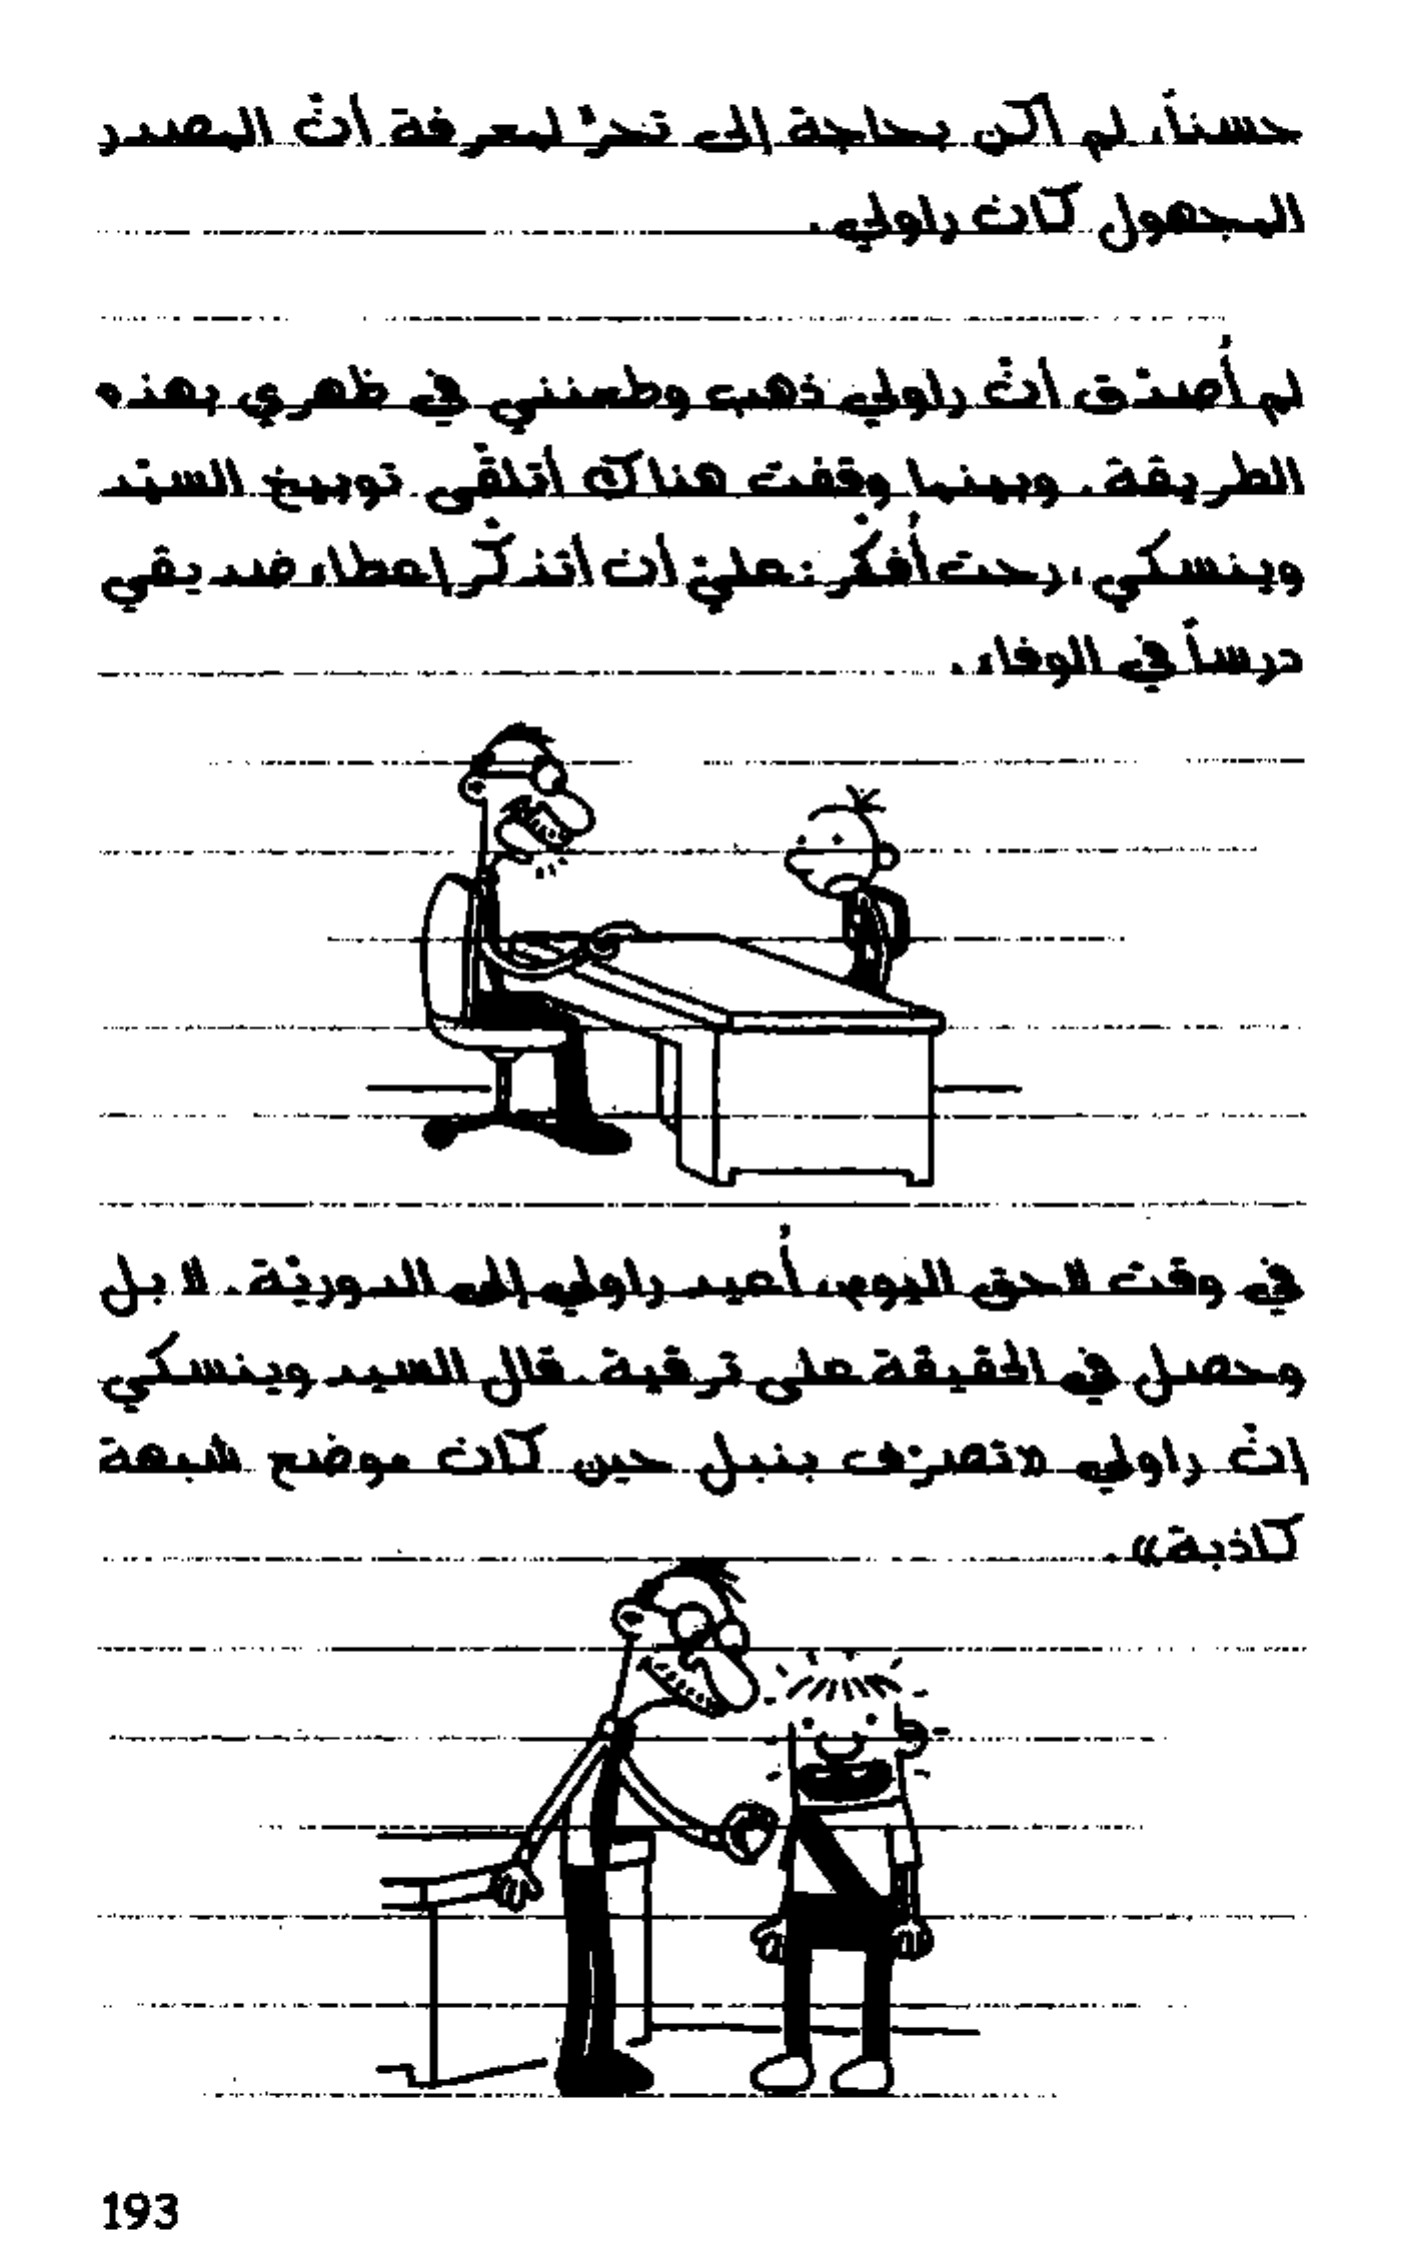 حسناً، لم أكن بحاجة إلى تحرٍّ لمعرفة أنّ المصدر
المجهول كان راولي.
لم أُصدّق أنّ راولي ذهب وطعنني في ظهري بهذه
الطريقة. وبينما وقفت هناك أتلقّى توبيخ السيّد
وينسكي، رحت أُفكّر: عليّ أن أتذكّر إعطاء صديقي
درساً في الوفاء.
في وقت لاحق اليوم، أُعيد راولي إلى الدوريّة. لا بل
وحصل في الحقيقة على ترقية. قال السيد وينسكي
إنّ راولي «تصرّف بنبل حين كان موضع شبهة
كاذبة».
193